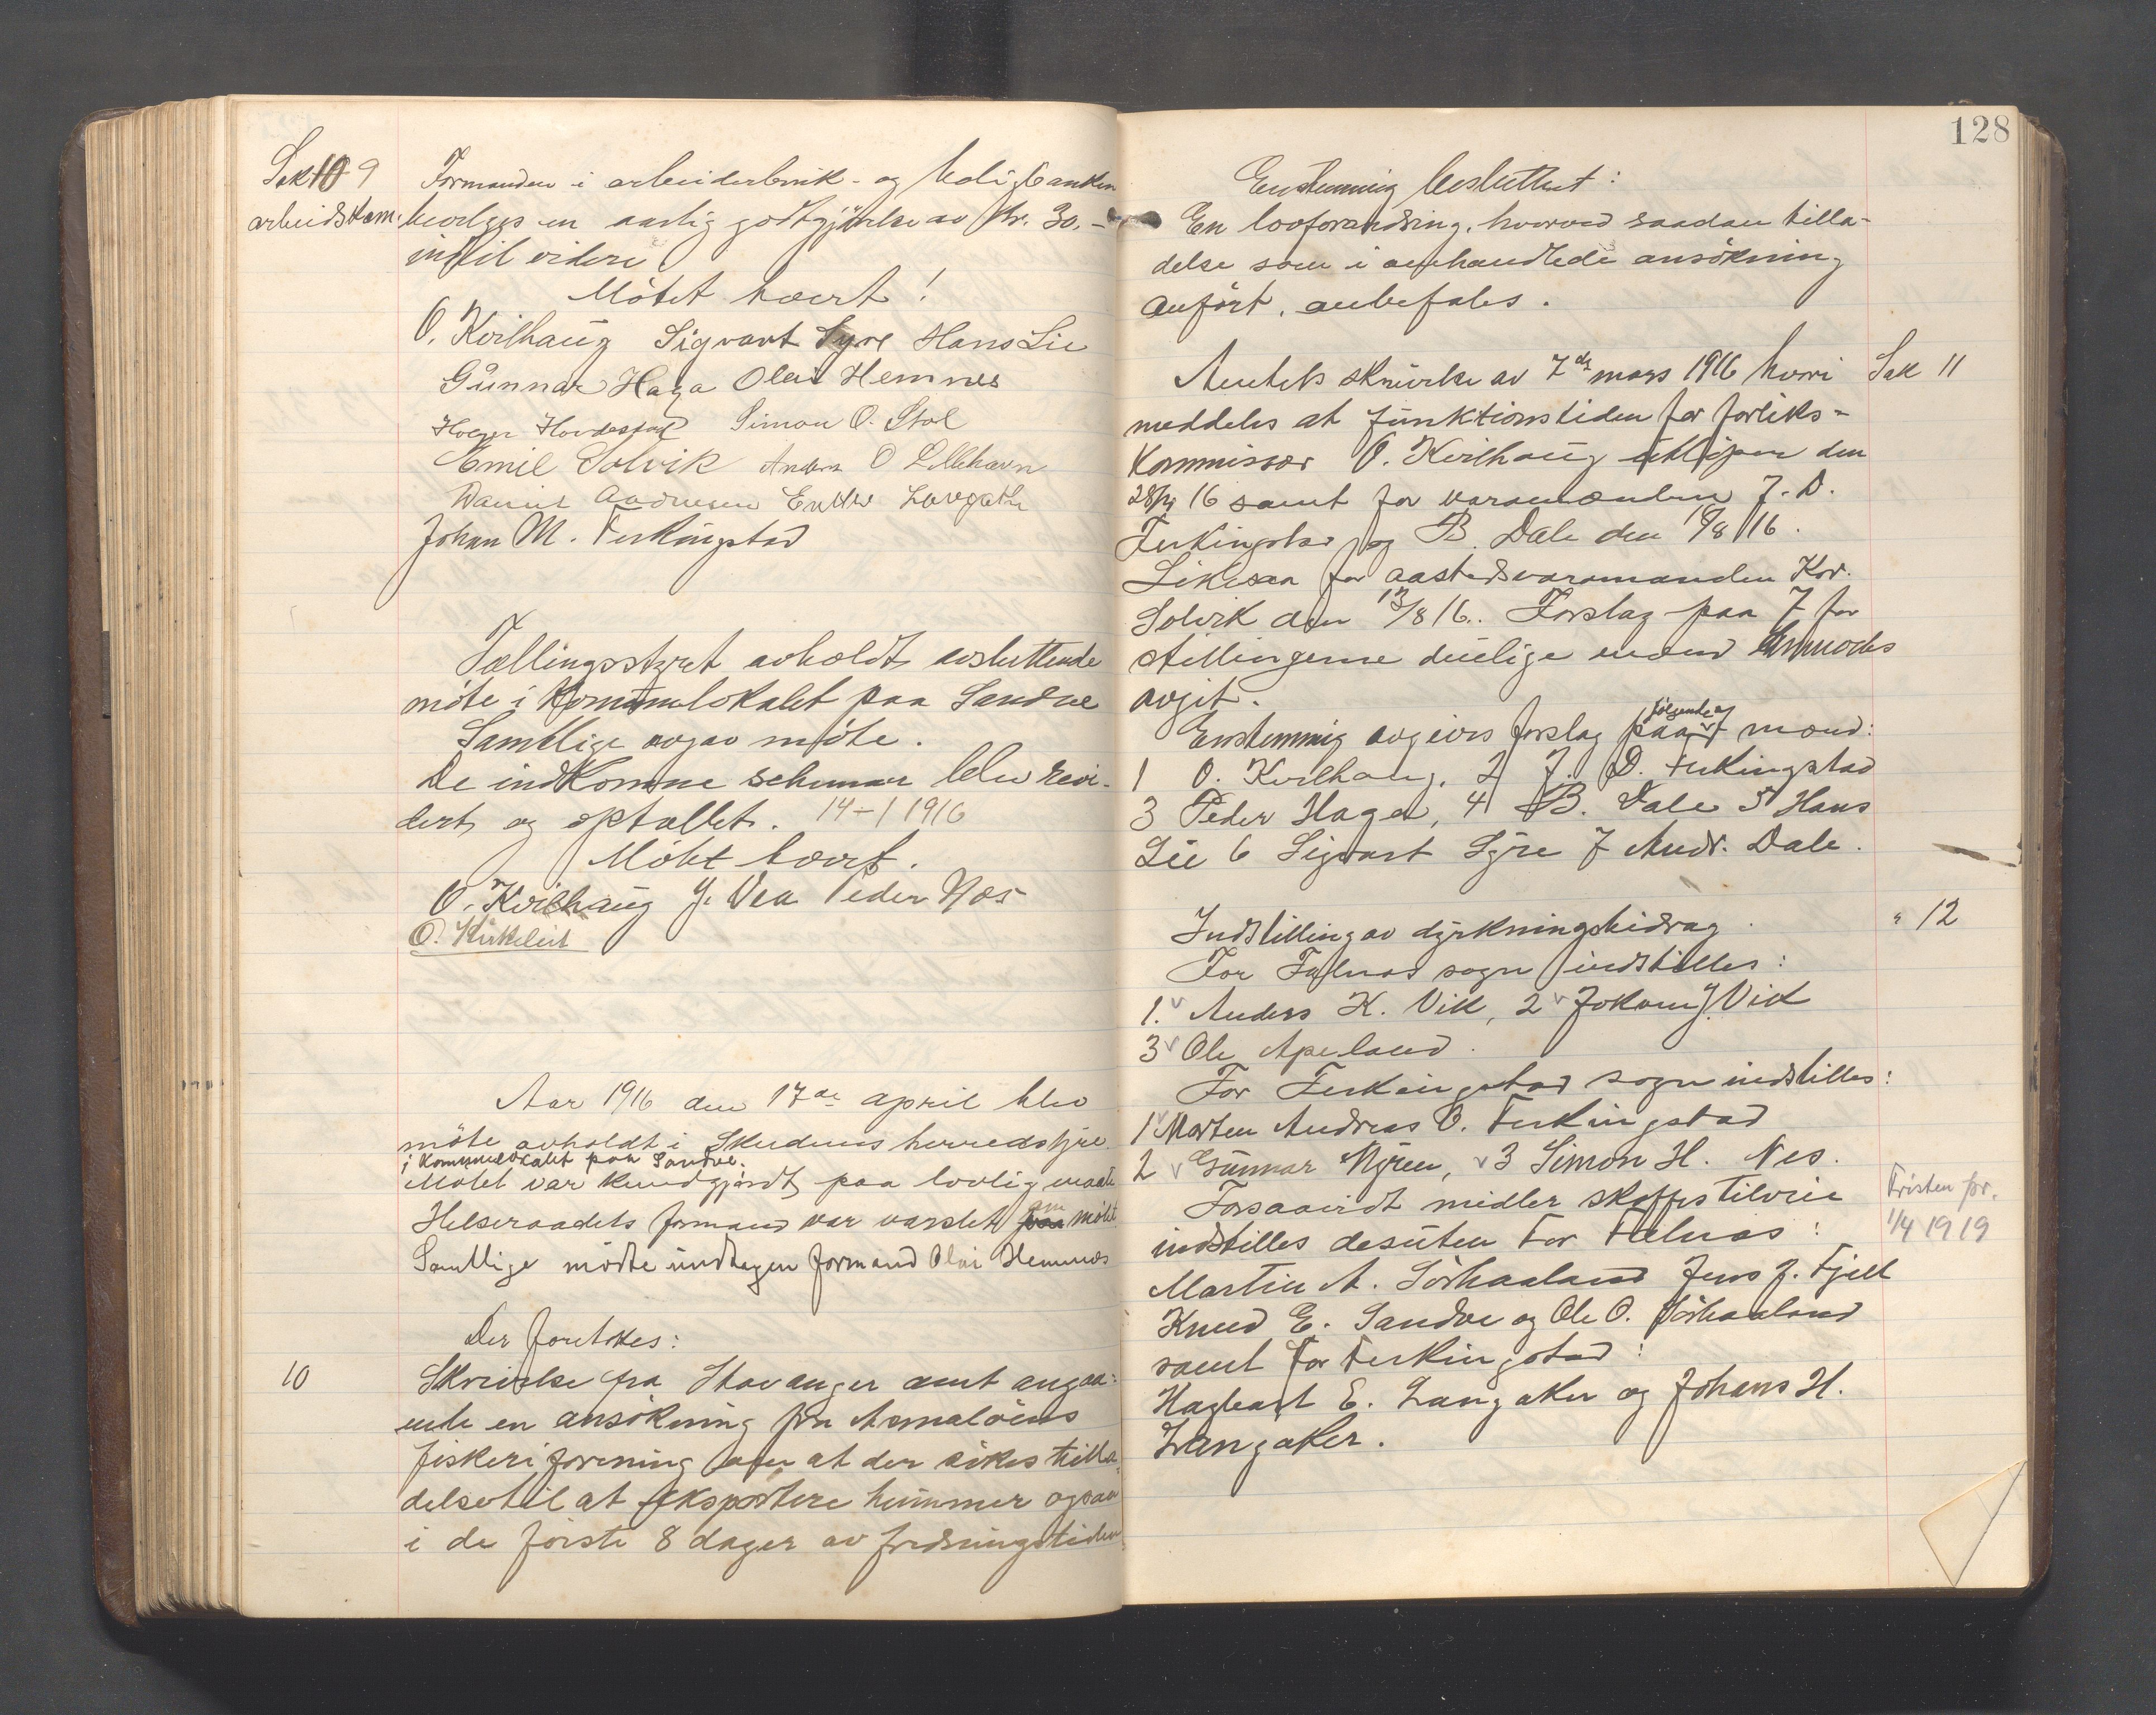 Sak 10 9
arbeidskom.
Formanden i arbeiderbruk- og boligbanken
bevilges en aarlig godtgjörelse av kr. 30.-
indtil videre
Mötet hævet!
O. Kvilhaug Sigvart Syre Hans Lie
Gunnar Haga Olai Hemnes
Simon O. Stol
Emil Solvik Anders O Lillehavn
Daniel Andresen Endre Langaker
Johan M. Ferkingstad
Tællingsstyret avholdt avsluttende
möte i Komunelokalet paa Sandve
Samtlige avgav möte.
De indkomne schemaer blev revi-
dert og optallet. 14-1 1916
Mötet hævet.
O. Kvilhaug J. Vea Peder Næs
O. Kirkeleit
Aar 1916 den 17de april blev
möte avholdt i Skudenes herredstyre
i Kommunelokalet paa Sandve.
Mötet var kundgjordt paa lovlig maate
Helseraadets formand var varslet paa om mötet
Samtlige mödte undtagen formand Olai Hemnes
Der foretokes:
10
Skrivelse fra Stavanger amt angaa-
ende en ansökning fra
fiskeriforening om at der sökes tilla-
delse til at eksportere hummer ogsaa
i de förste 8 dager av fredningstiden
128
Enstemmig besluttet:
En lovforandring, hvorved saadan tilla-
delse som i omhandlede ansökning
anfört, anbefales.
Sak 11
Amtets skrivelse av 7de mars 1916 hvori
meddeles at funktionstiden for forliks-
kommissær O. Kvilhaug utlöper den
28/4 16 samt for varamændene J. D.
Ferkingstad og B. Dale den /8 16.
Likesaa for aastedsvaramanden Kor.
Solvik den /8 16. Forslag paa 7 for
stillingerne duelige mænd anmodes
avgit.
Enstemmig avgives forslag paa følgende 7 mænd:
1 O. Kvilhaug, 2 J. D. Ferkingstad
3 Peder Haga, 4 B. Dale 5 Hans
Lie 6 Sigvart Syre 7 Andr. Dale.
" 12
Indstilling av dyrkningsbidrag.
For Falnes sogn indstilles:
1. Anders K. Vik, 2 Jokum J. Vik
3 Ole Apeland.
For Ferkingstad sogn indstilles:
1 Morten Andreas O. Ferkingstad
2 Gunnar Myren, 3 Simon H. Nes.
Forsaavidt midler skaffes tilveie
Fristen for.
1/4 1919
indstilles desuten For Falnes:
Martin A. Sörhaaland Jens J. Fjell
Knud E. Sandve og Ole O. Sörhaaland
samt For Ferkingstad:
Hagbart E. Langaker og Johans H.
Langaker.